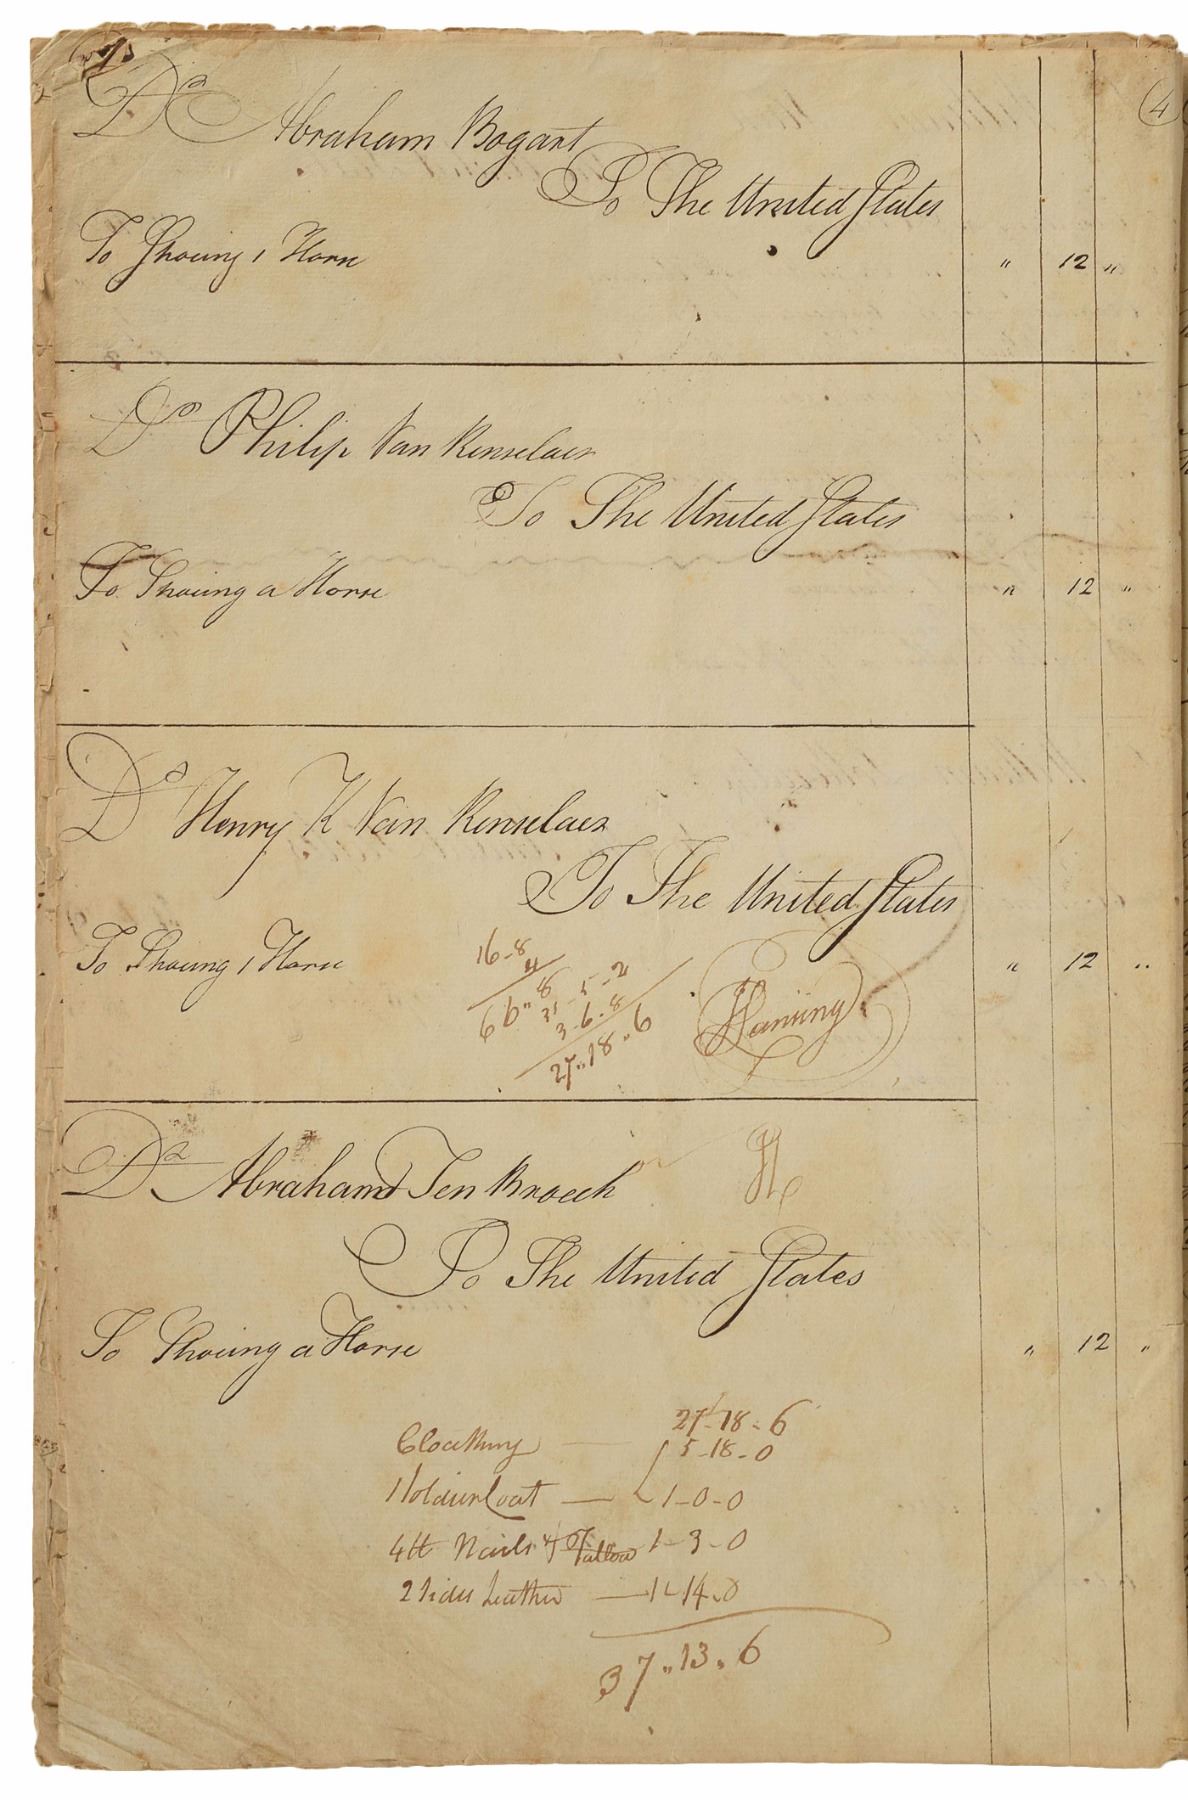 (4
Dr Abraham Bogart
To The United States
To Shoeing 1 Horse " 12 "
Dr Philip Van Renselaer
To The United States
To Shoeing a Horse " 12 "
Dr Henry K Van Renselaer
To The United States
To Shoeing 1 Horse " 12 "
16-8
4
6 6 " 8
21-5-2
3-6-8
27"18"6
Dr Abraham Ten Broeck H
To The United States
To Shoeing a Horse " 12 "
27-18-6
Cloathing — 5-18-0
1 Soldiers Coat — 1-0-0
4lb Nails & Tallow 1-3-0
2 sides Leather — 1-14-0
37"13"6